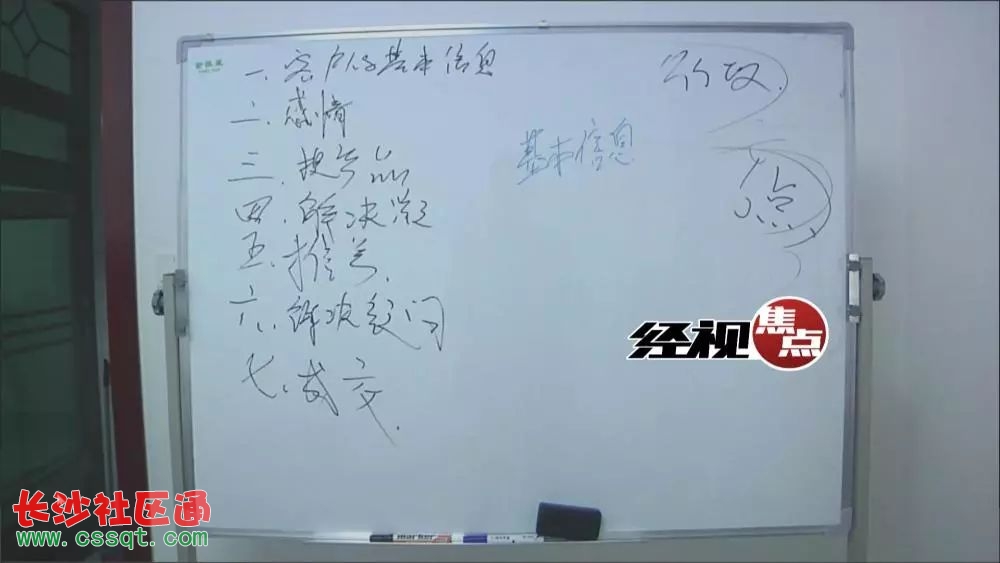 一、客户的基本信息
二、感情
三、挖产品
四、解决疑
五、推
六、解决疑问
七、成交.
基本信息
点
经视
焦点
长沙社区通
www.cssqt.com
marker